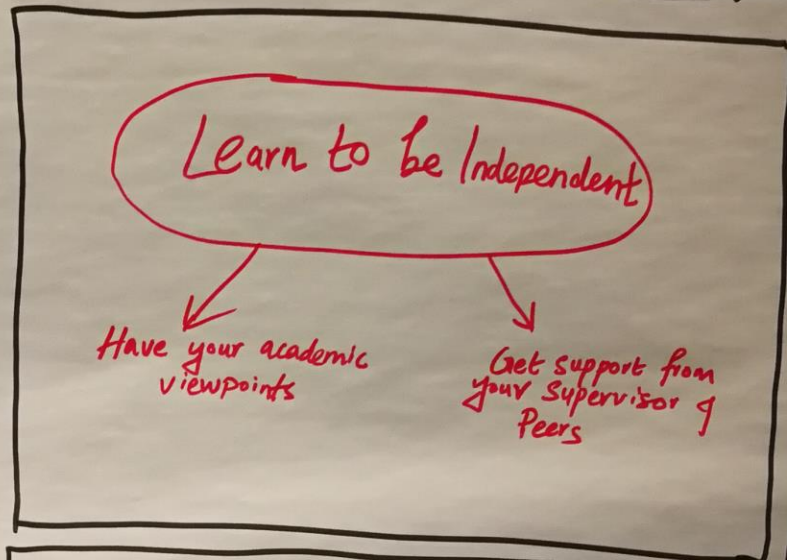 Learn to be Independent
Have your academic
viewpoints
Get support from
your supervisor &
Peers